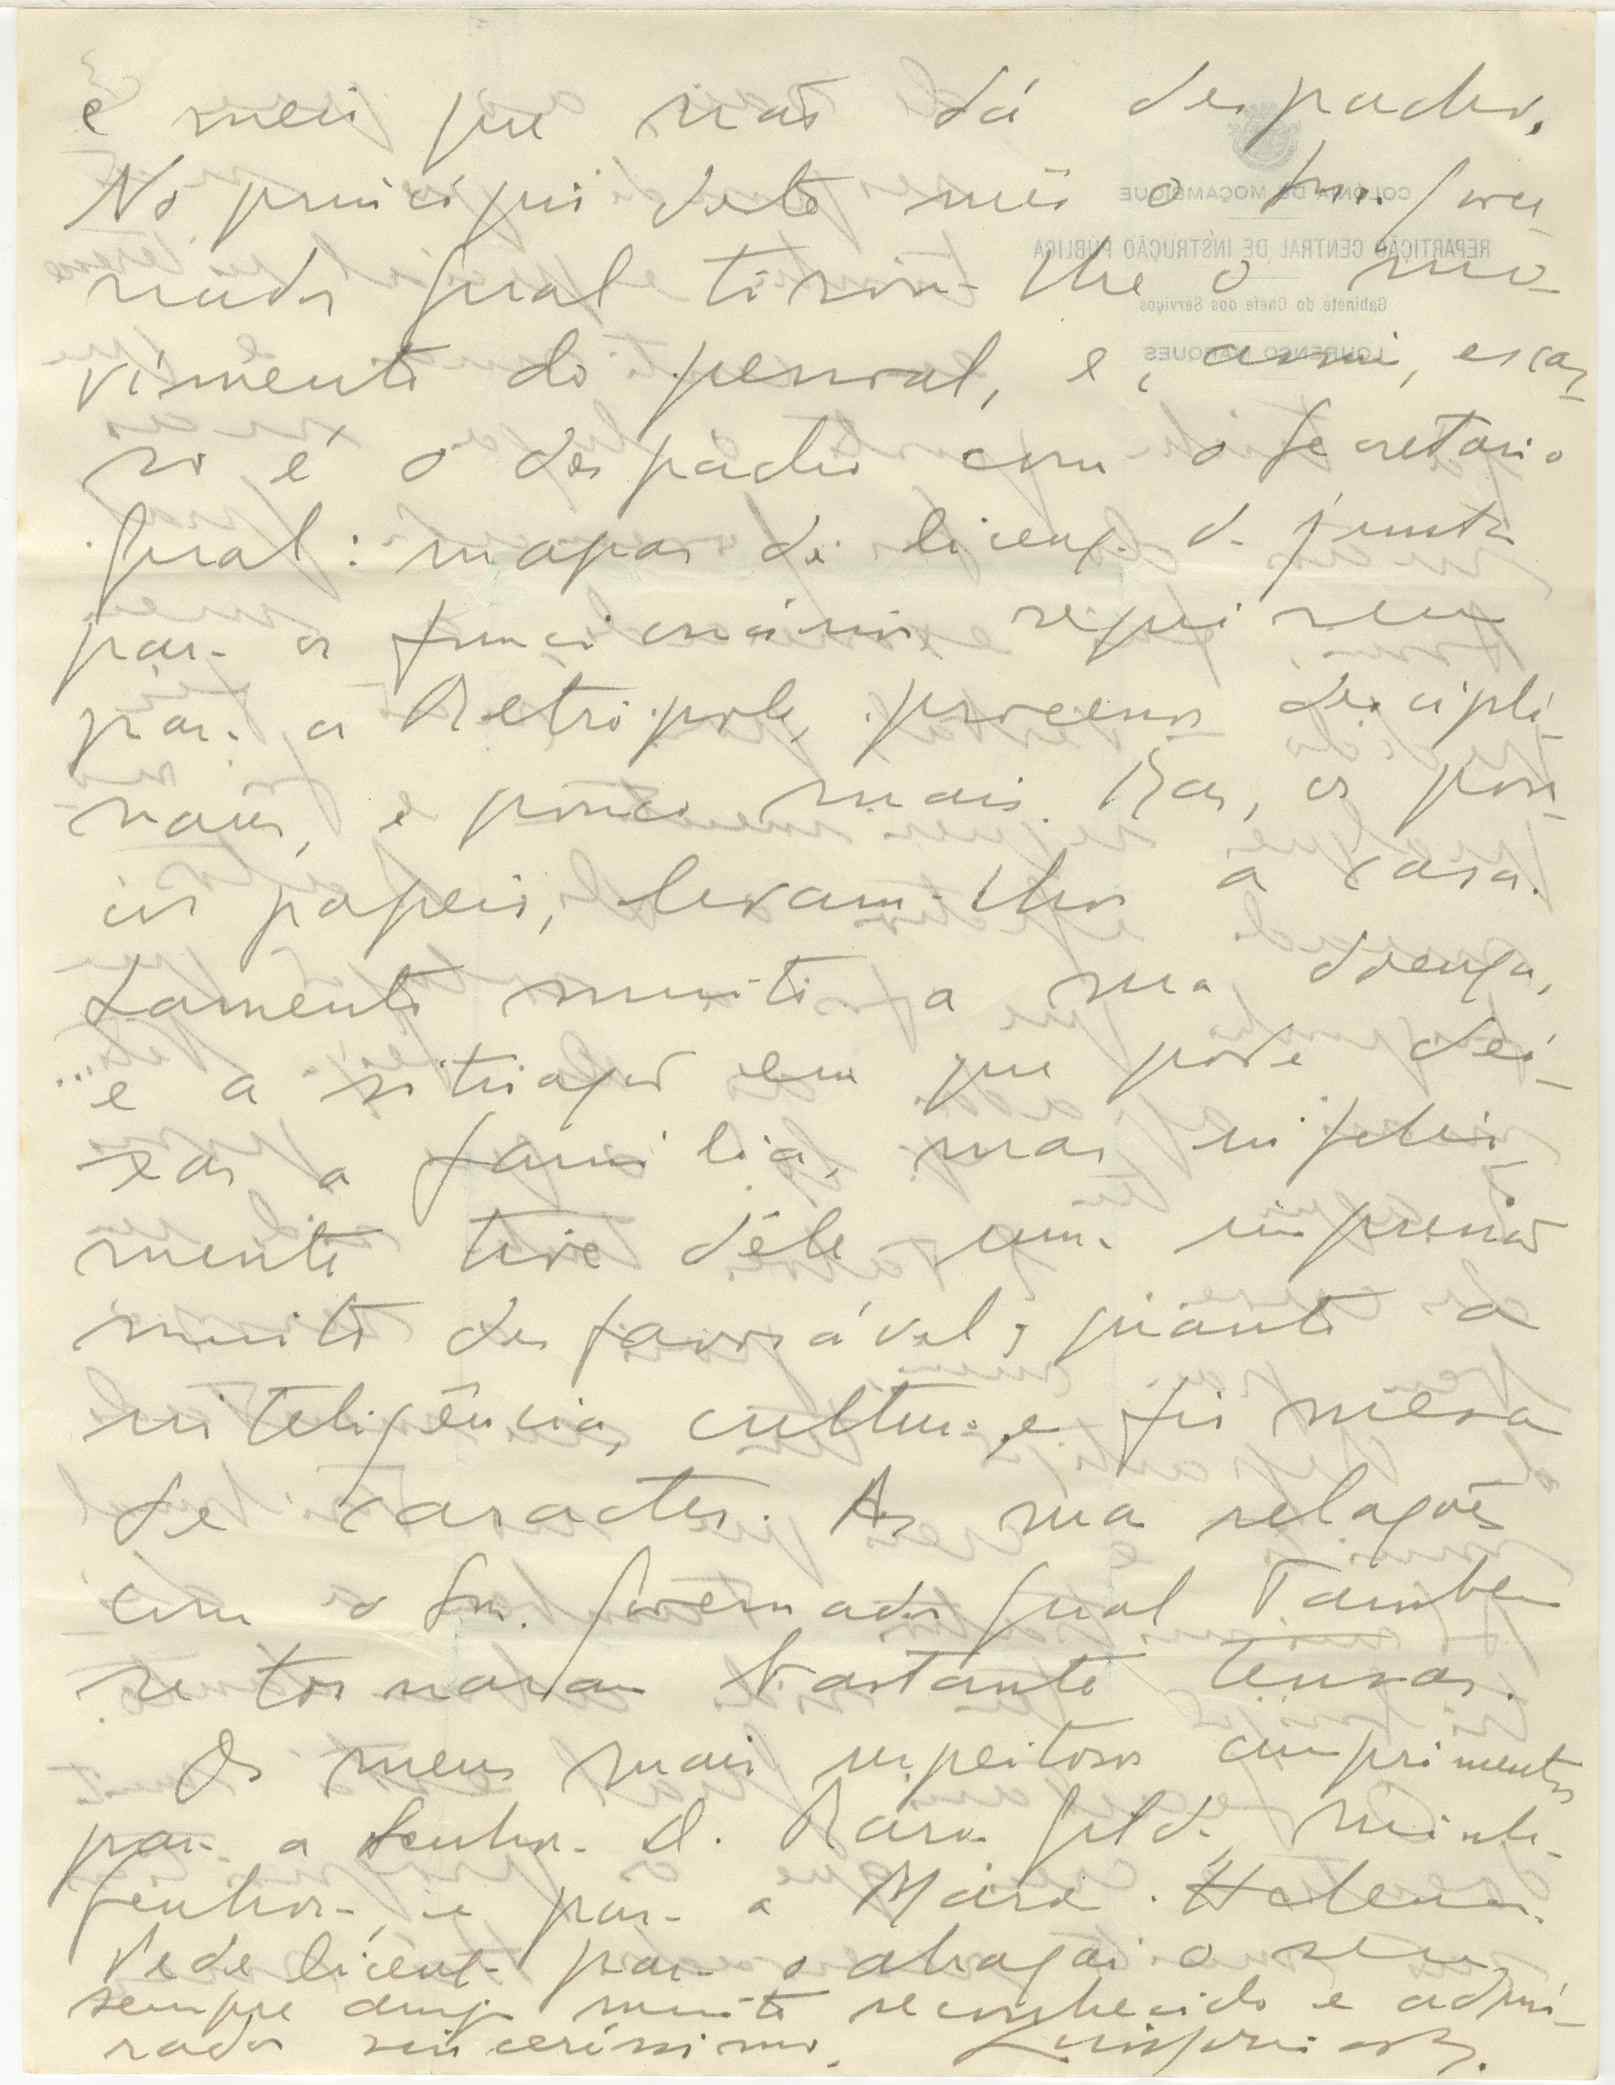 e meio que não dá despacho.
No princípio deste mês o Snr. Gover-
nador Geral tirou-lhe o mo-
vimento do pessoal, e, assim, escas-
so é o despacho com o Secretário
Geral: mapas de licença da junta
para os funcionários seguirem
para a Metrópole, processos discipli-
nares, e pouco mais. Mas, os pou-
cos papeis, levam-lhos a casa.
Lamento muito a sua doença,
e a situação em que pode dei-
xar a familia, mas infeliz-
mente tive dêle uma impressão
muito desfavorável, quanto a
inteligência, cultura e firmesa
de caracter. As suas relações
com o Snr. Governador Geral tambem
se tornaram bastante tensas.
Os meus mais respeitosos cumprimentos
para a Senhora D. Minha
Senhora, e para a Maria Helena.
Pede licença para o abraçar o seu
sempre amigo muito reconhecido e admi-
rador sincerissimo,
COLÓNIA DE MOÇAMBIQUE
REPARTIÇÃO CENTRAL DE INSTRUÇÃO PÚBLICA
Gabinete do Chefe dos Serviços
LOURENÇO MARQUES